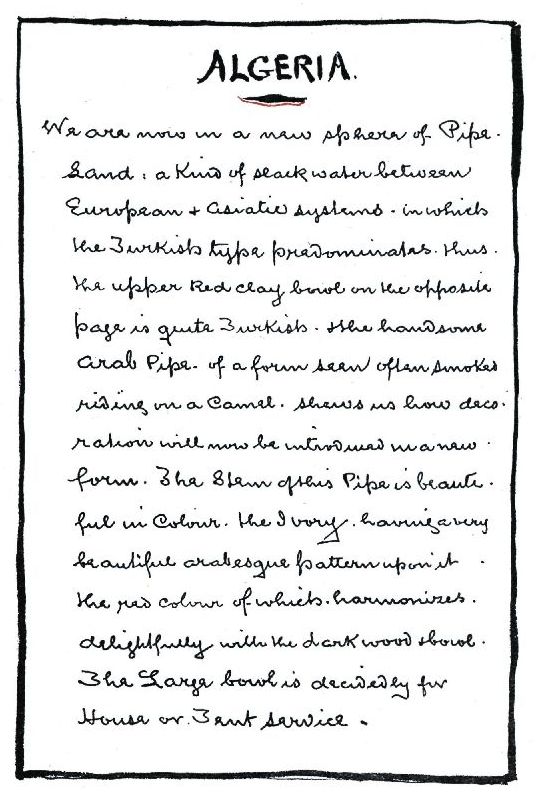 ALGERIA.
We are now in a new sphere of Pipe-
Land: a Kind of slack water between
European + Asiatic systems - in which
the Turkish type predominates. Thus.
the upper Red clay bowl on the opposite
page is quite Turkish. The handsome
Arab Pipe - of a form seen often smoked
riding on a Camel. shews us how deco-
ration will now be introduced in a new
form. The Stem of this Pipe is beauti-
ful in Colour. the Ivory. having a very
beautiful arabesque pattern upon it -
the red colour of which. harmonizes.
delightfully with the dark wood + bowl.
The Large bowl is decidedly for
House or Tent service.